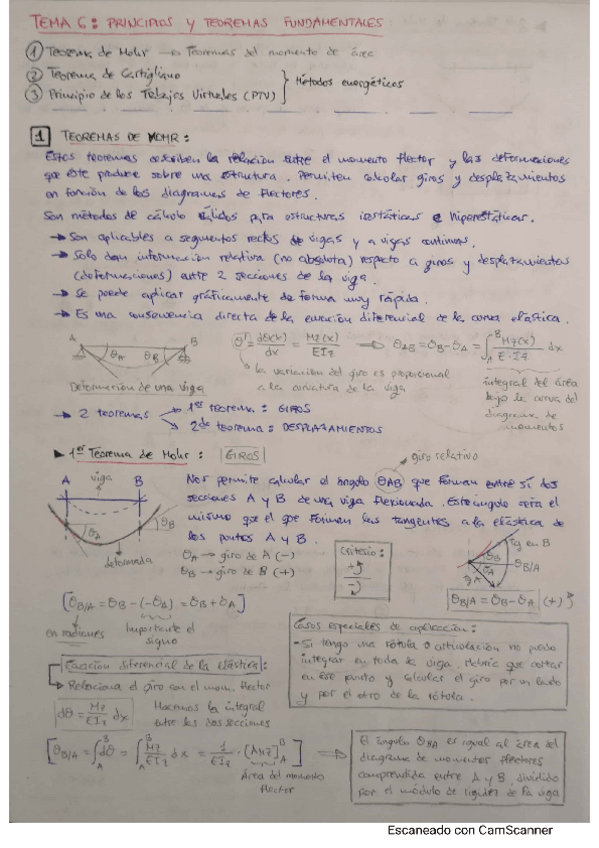 TEMA 6: PRINCIPIOS Y TEOREMAS FUNDAMENTALES:
① Teorema de Mohr → Teoremas del momento de área
② Teorema de Castigliano
③ Principio de los Trabajos Virtuales (PTV)
Métodos energéticos
1 TEOREMAS DE MOHR:
Estos teoremas describen la relación entre el momento flector y las deformaciones
que este produce sobre una estructura. Permiten calcular giros y desplazamientos
en función de los diagramas de flectores.
Son métodos de cálculo válidos para estructuras isostáticas e hiperestáticas.
→ Son aplicables a segmentos rectos de vigas y a vigas continuas.
→ Solo dan información relativa (no absoluta) respecto a giros y desplazamientos
(deformaciones) entre 2 secciones de la viga.
→ Se puede aplicar gráficamente de forma muy rápida.
→ Es una consecuencia directa de la ecuación diferencial de la curva elástica.
A θA θB B
θ' = dθ(x)/dx = Mz(x)/EIz ⇒ θAB = θB - θA = ∫AB Mz(x)/E·Iz dx
la variación del giro es proporcional
a la curvatura de la viga
Deformación de una viga
integral del área
bajo la curva del
diagrama de
momentos
→ 2 teoremas
1er teorema: GIROS
2do teorema: DESPLAZAMIENTOS
► 1er Teorema de Mohr: GIROS
giro relativo
A viga B
θA θB
deformada
Nos permite calcular el ángulo θAB que forman entre sí dos
secciones A y B de una viga flexionada. Este ángulo será el
mismo que el que forman las tangentes a la elástica de
los puntos A y B.
θA → giro de A (-)
θB → giro de B (+)
Criterio:
+
-
tg en B
θB
θA
θB/A
tg A
θB/A = θB - θA (+)
[θB/A = θB - (-θA) = θB + θA]
en radianes
Importante el
signo
Casos especiales de aplicación:
- Si tengo una rótula o articulación no puedo
integrar en toda la viga. Habría que cortar
en ese punto y calcular el giro por un lado
y por el otro de la rótula.
Ecuación diferencial de la elástica:
→ Relaciona el giro con el mom. flector
dθ = Mz/EIz dx
Hacemos la integral
entre las dos secciones
[θB/A = ∫AB dθ = ∫AB Mz/EIz dx = 1/EIz · [AMz]AB] ⇒
Área del momento
flector
El ángulo θB/A es igual al área del
diagrama de momentos flectores
comprendida entre A y B, dividido
por el módulo de rigidez de la viga
Escaneado con CamScanner